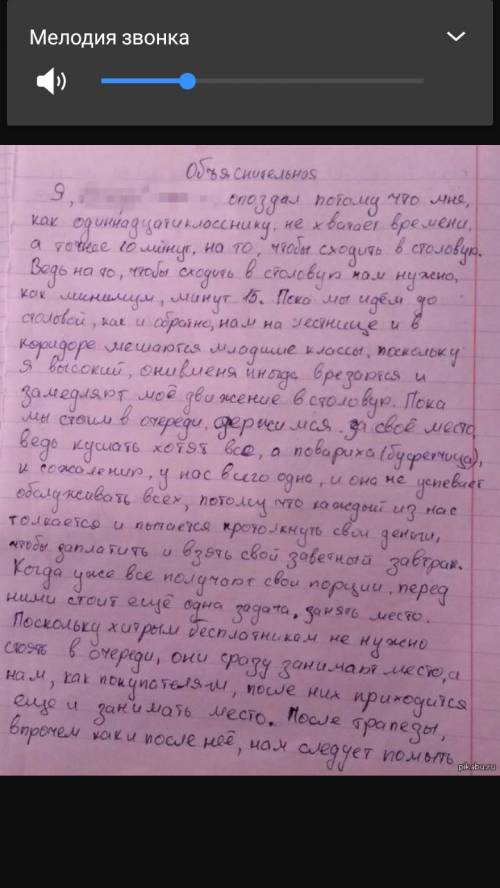 Мелодия звонка
Объяснительная
Я, опоздал потому что мне,
как одиннадцатикласснику, не хватает времени,
а точнее 10 минут, на то, чтобы сходить в столовую.
Ведь на то, чтобы сходить в столовую нам нужно,
как минимум, минут 15. Пока мы идём до
столовой, как и обратно, нам на лестнице и в
коридоре мешаются младшие классы, поскольку
я высокий, они в меня иногда врезаются и
замедляют моё движение в столовую. Пока
мы стоим в очереди, держимся за своё место,
ведь кушать хотят все, а повариха (буфетчица),
к сожалению, у нас всего одна, и она не успевает
обслуживать всех, потому что каждый из нас
толкается и пытается протолкнуть свои деньги,
чтобы заплатить и взять свой заветный завтрак.
Когда уже все получают свои порции, перед
ними стоит ещё одна задача, занять место.
Поскольку хитрым бесплатникам не нужно
стоять в очереди, они сразу занимают место, а
нам, как покупателям, после них приходится
еще и занимать место. После трапезы,
впрочем как и после неё, нам следует помыть
pikabu.ru